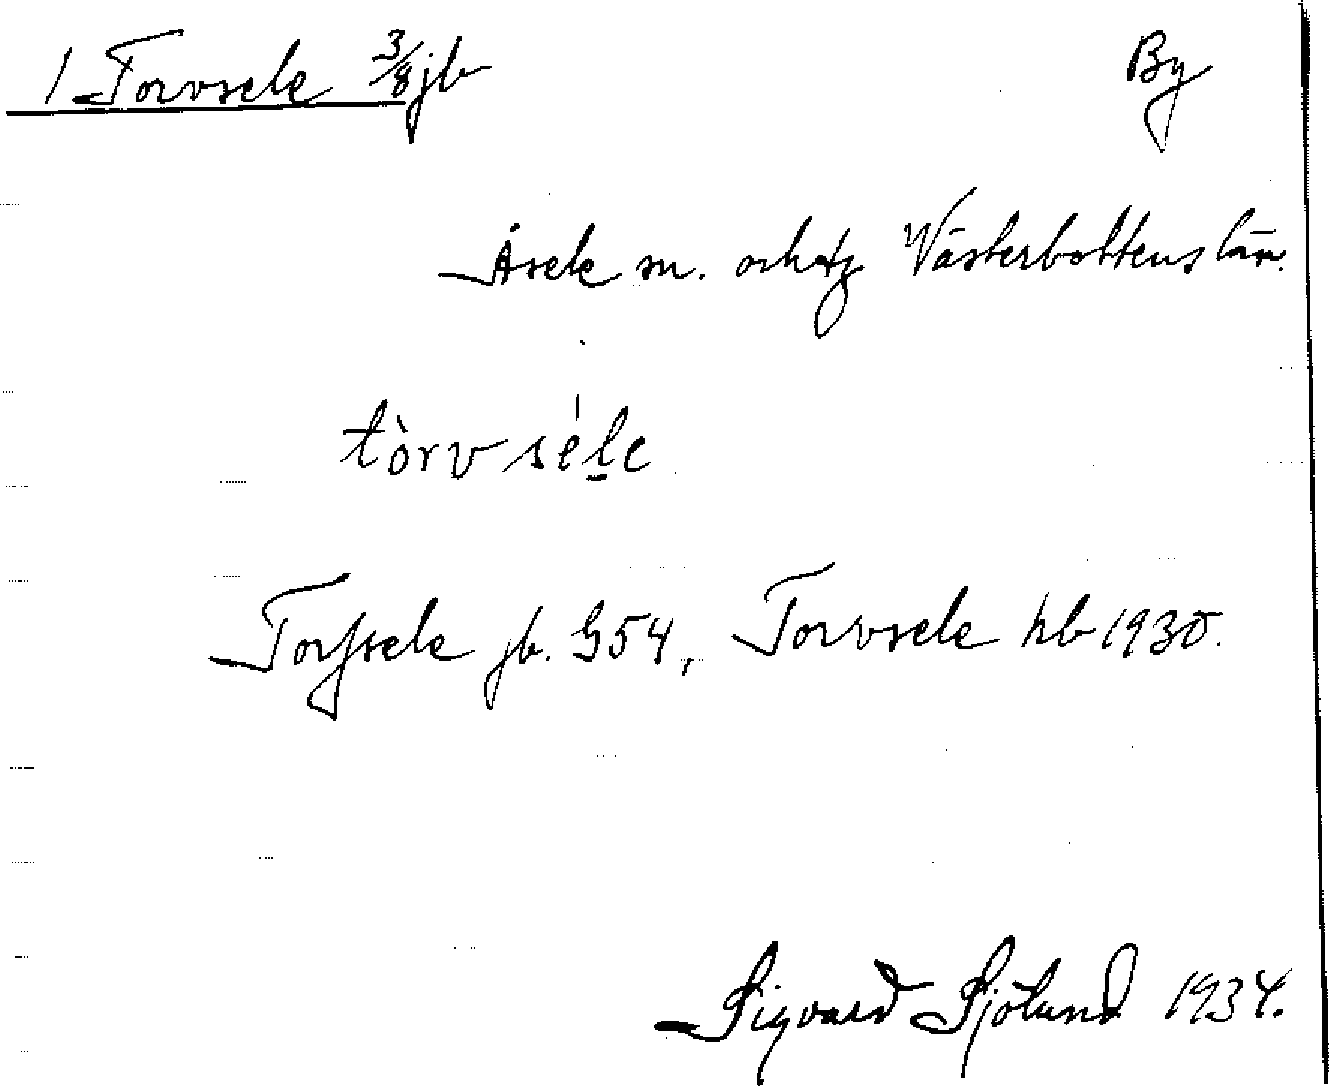 1 Torvsele 3/8 jb By
Åsele sn. och tg Västerbottens län.
tòrvséle
Torfsele jb. G54, Torvsele hb 1930.
Sigvard Sjölund 1934.